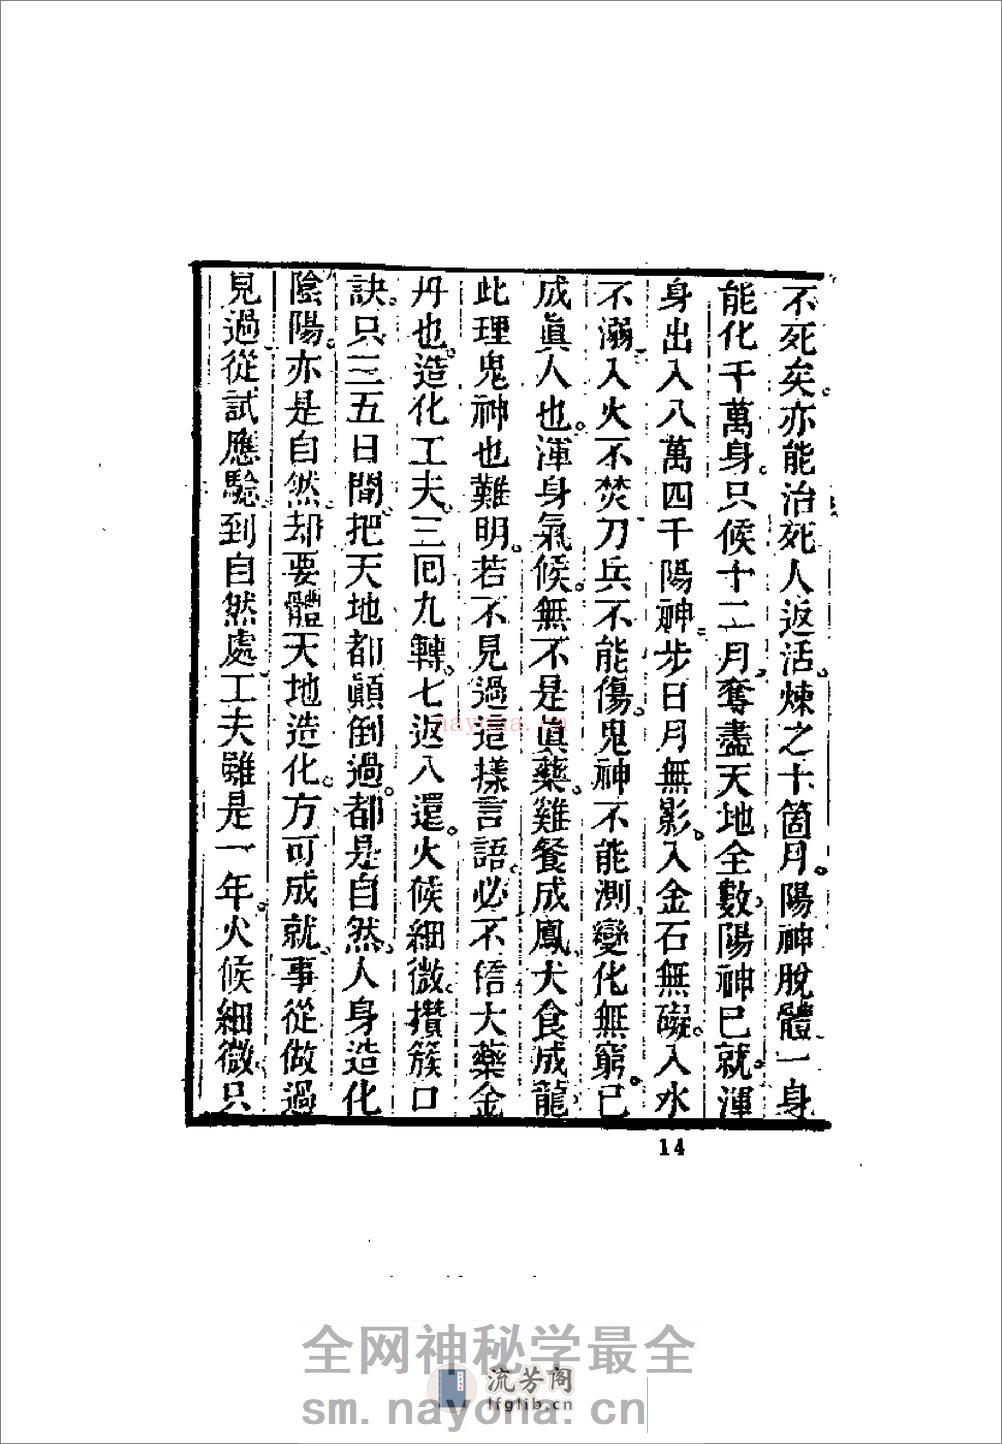 不死矣。亦能治死人返活。煉之十箇月。陽神脫體。一身
能化千萬身。只候十二月。奪盡天地全數。陽神已就。渾
身出入八萬四千陽神。步日月無影。入金石無礙。入水
不溺。入火不焚。刀兵不能傷。鬼神不能測。變化無窮。已
成眞人也。渾身氣候。無不是眞藥。雞餐成鳳。犬食成龍。
此理鬼神也難明。若不見過這樣言語。必不信大藥金
丹也。造化工夫。三回九轉。七返八還。火候細微。攢簇口
訣。只三五日間。把天地都顚倒過。都是自然。人身造化
陰陽。亦是自然。却要體天地造化。方可成就。事從做過
見過。從試應驗。到自然處。工夫雖是一年。火候細微。只
14
nayona.cn
全网神秘学最全
流芳阁
lfglib.cn
sm.nayona.cn